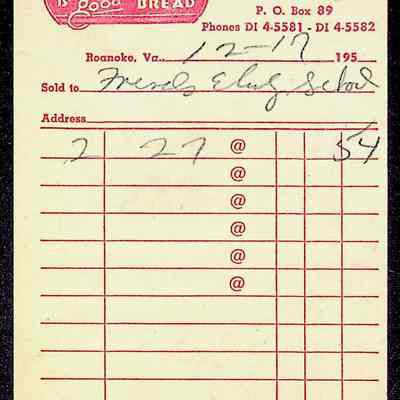 is good BREAD
P. O. Box 89
Phones DI 4-5581 - DI 4-5582
Roanoke, Va. 12-17 195
Sold to Friends Elem. School
Address
2 27 @ 54
@
@
@
@
@